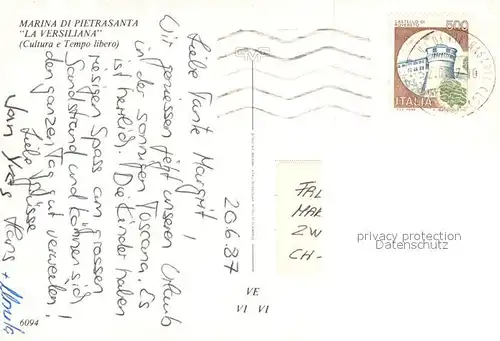 MARINA DI PIETRASANTA
"LA VERSILIANA"
(Cultura e Tempo libero)
Liebe Tante Margrit!
Wir geniessen jetzt unseren Urlaub
in der sonnigen Toscana. Es
ist herrlich. Die Kinder haben
riesigen Spass am grossen
Sandstrand und können sich
den ganzen Tag gut verweilen!
Liebe Grüsse
von
Hans +
20.6.87
6094
VE
VI VI
CASTELLO DI
ROVERETO
500
ITALIA
CH-
privacy protection
Datenschutz